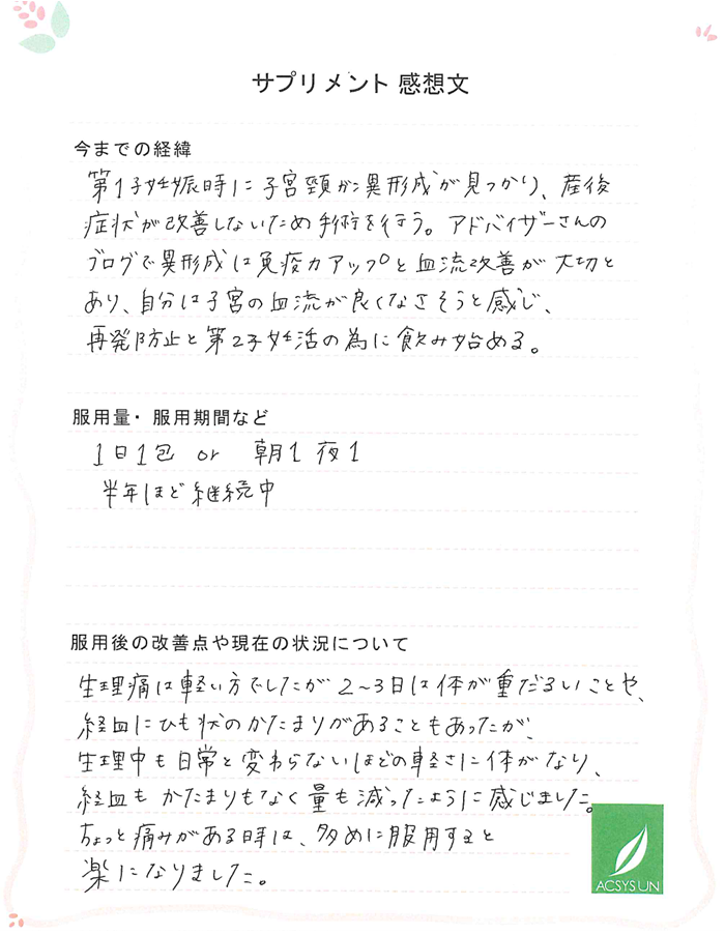 サプリメント 感想文
今までの経緯
第1子妊娠時に子宮頸がん異形成が見つかり、産後
症状が改善しないため手術を行う。アドバイザーさんの
ブログで異形成は免疫力アップと血流改善が大切と
あり、自分は子宮の血流が良くなさそうと感じ、
再発防止と第2子妊活の為に飲み始める。
服用量・服用期間など
1日1包 or 朝1 夜1
半年ほど継続中
服用後の改善点や現在の状況について
生理痛は軽い方でしたが2~3日は体が重だるいことや、
経血にひも状のかたまりがあることもあったが、
生理中も日常と変わらないほどの軽さに体がなり、
経血もかたまりもなく量も減ったように感じました。
ちょっと痛みがある時は、多めに服用すると
楽になりました。
ACSYSUN